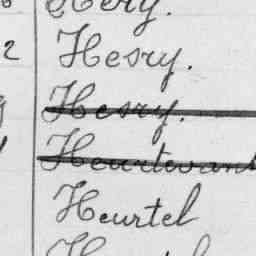 2 Hesry.
Hesry.
Heurtevent
Heurtel